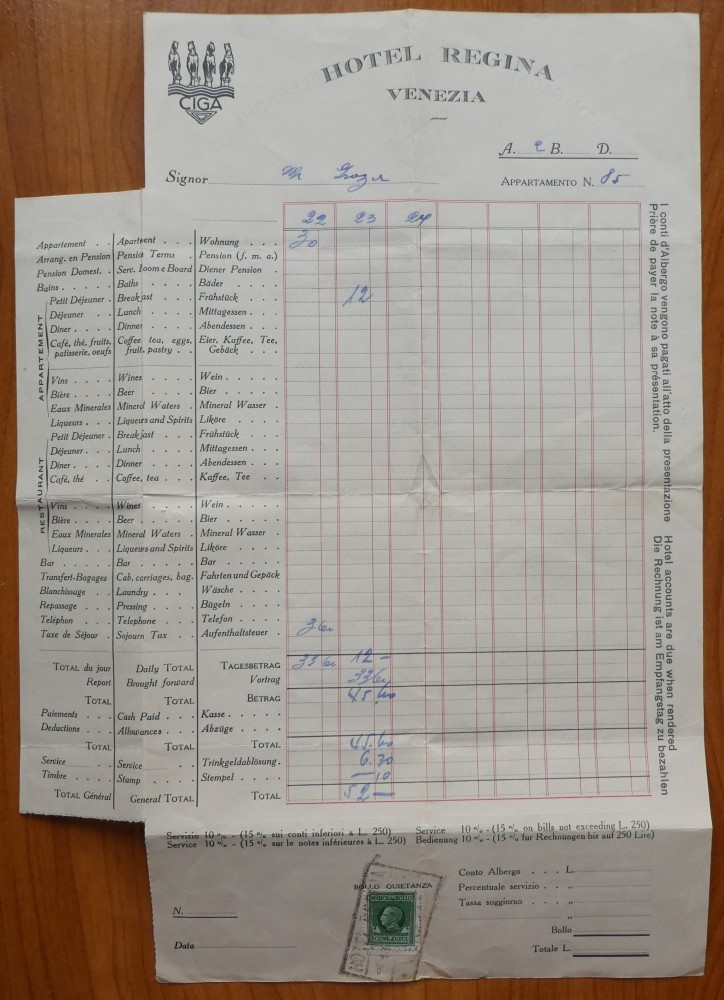 CIGA
HOTEL REGINA
VENEZIA
A. 2 B. D.
Signor Mr
APPARTAMENTO N. 85
22 23 24
Appartement . . Apartment . . . Wohnung . . . 30
Arrang. en Pension Pension Terms . Pension (f. m. a.)
Pension Domest. . Serv. Room e Board Diener Pension .
Bains . . . . Baths . . . Bäder . . . .
APPARTEMENT
Petit Déjeuner . Breakfast . . . Frühstück . . . 12
Déjeuner . . . Lunch . . . . Mittagessen . . .
Diner . . . . Dinner . . . . Abendessen . . .
Café, thé, fruits, Coffee, tea, eggs, Eier, Kaffee, Tee,
patisserie, oeufs fruit, pastry . . Gebäck . . .
Vins . . . . Wines . . . . Wein . . . .
Bière . . . . Beer . . . . Bier . . . .
Eaux Minerales Mineral Waters . Mineral Wasser .
Liqueurs . . . Liqueurs and Spirits Liköre . . . .
RESTAURANT
Petit Déjeuner . Breakfast . . . Frühstück . . .
Déjeuner . . . Lunch . . . . Mittagessen . . .
Diner . . . . Dinner . . . . Abendessen . . .
Café, thé . . Coffee, tea . . . Kaffee, Tee . .
Vins . . . . Wines . . . . Wein . . . .
Bière . . . . Beer . . . . Bier . . . .
Eaux Minerales Mineral Waters . Mineral Wasser .
Liqueurs . . . Liqueurs and Spirits Liköre . . . .
Bar . . . . . Bar . . . . . Bar . . . . .
Transfert-Bagages Cab, carriages, bag. Fahrten und Gepäck
Blanchissage . . Laundry . . . Wäsche . . . .
Repassage . . . Pressing . . . . Bügeln . . . .
Téléphon . . . Telephone . . . Telefon . . . .
Taxe de Séjour . Sojourn Tax . . Aufenthaltsteuer . . 3 60
TOTAL du jour Daily TOTAL TAGESBETRAG 33 60 12 —
Report Brought forward Vortrag 33 60
TOTAL TOTAL BETRAG 45.60
Paiements . . Cash Paid . . . Kasse . . . .
Deductions . . Allowances . . . Abzüge . . . .
TOTAL TOTAL TOTAL 45.60
Service . . . Service . . . . Trinkgeldablösung . 6.30
Timbre . . . Stamp . . . . Stempel . . . . — 10
TOTAL Général General TOTAL TOTAL 52 —
I conti d'Albergo vengono pagati all'atto della presentazione
Prière de payer la note à sa présentation.
Hotel accounts are due when rendered
Die Rechnung ist am Empfangstag zu bezahlen
Servizio 10 % - (15 % sui conti inferiori a L. 250)
Service 10 % - (15 % sur le notes inférieures à L. 250)
Service 10 % - (15 % on bills not exceeding L. 250)
Bedienung 10 % - (15 % für Rechnungen bis auf 250 Lire)
BOLLO QUIETANZA
N.
Data
Conto Albergo . . . L.
Percentuale servizio . . "
Tassa soggiorno . . . "
"
Bollo
Totale L.